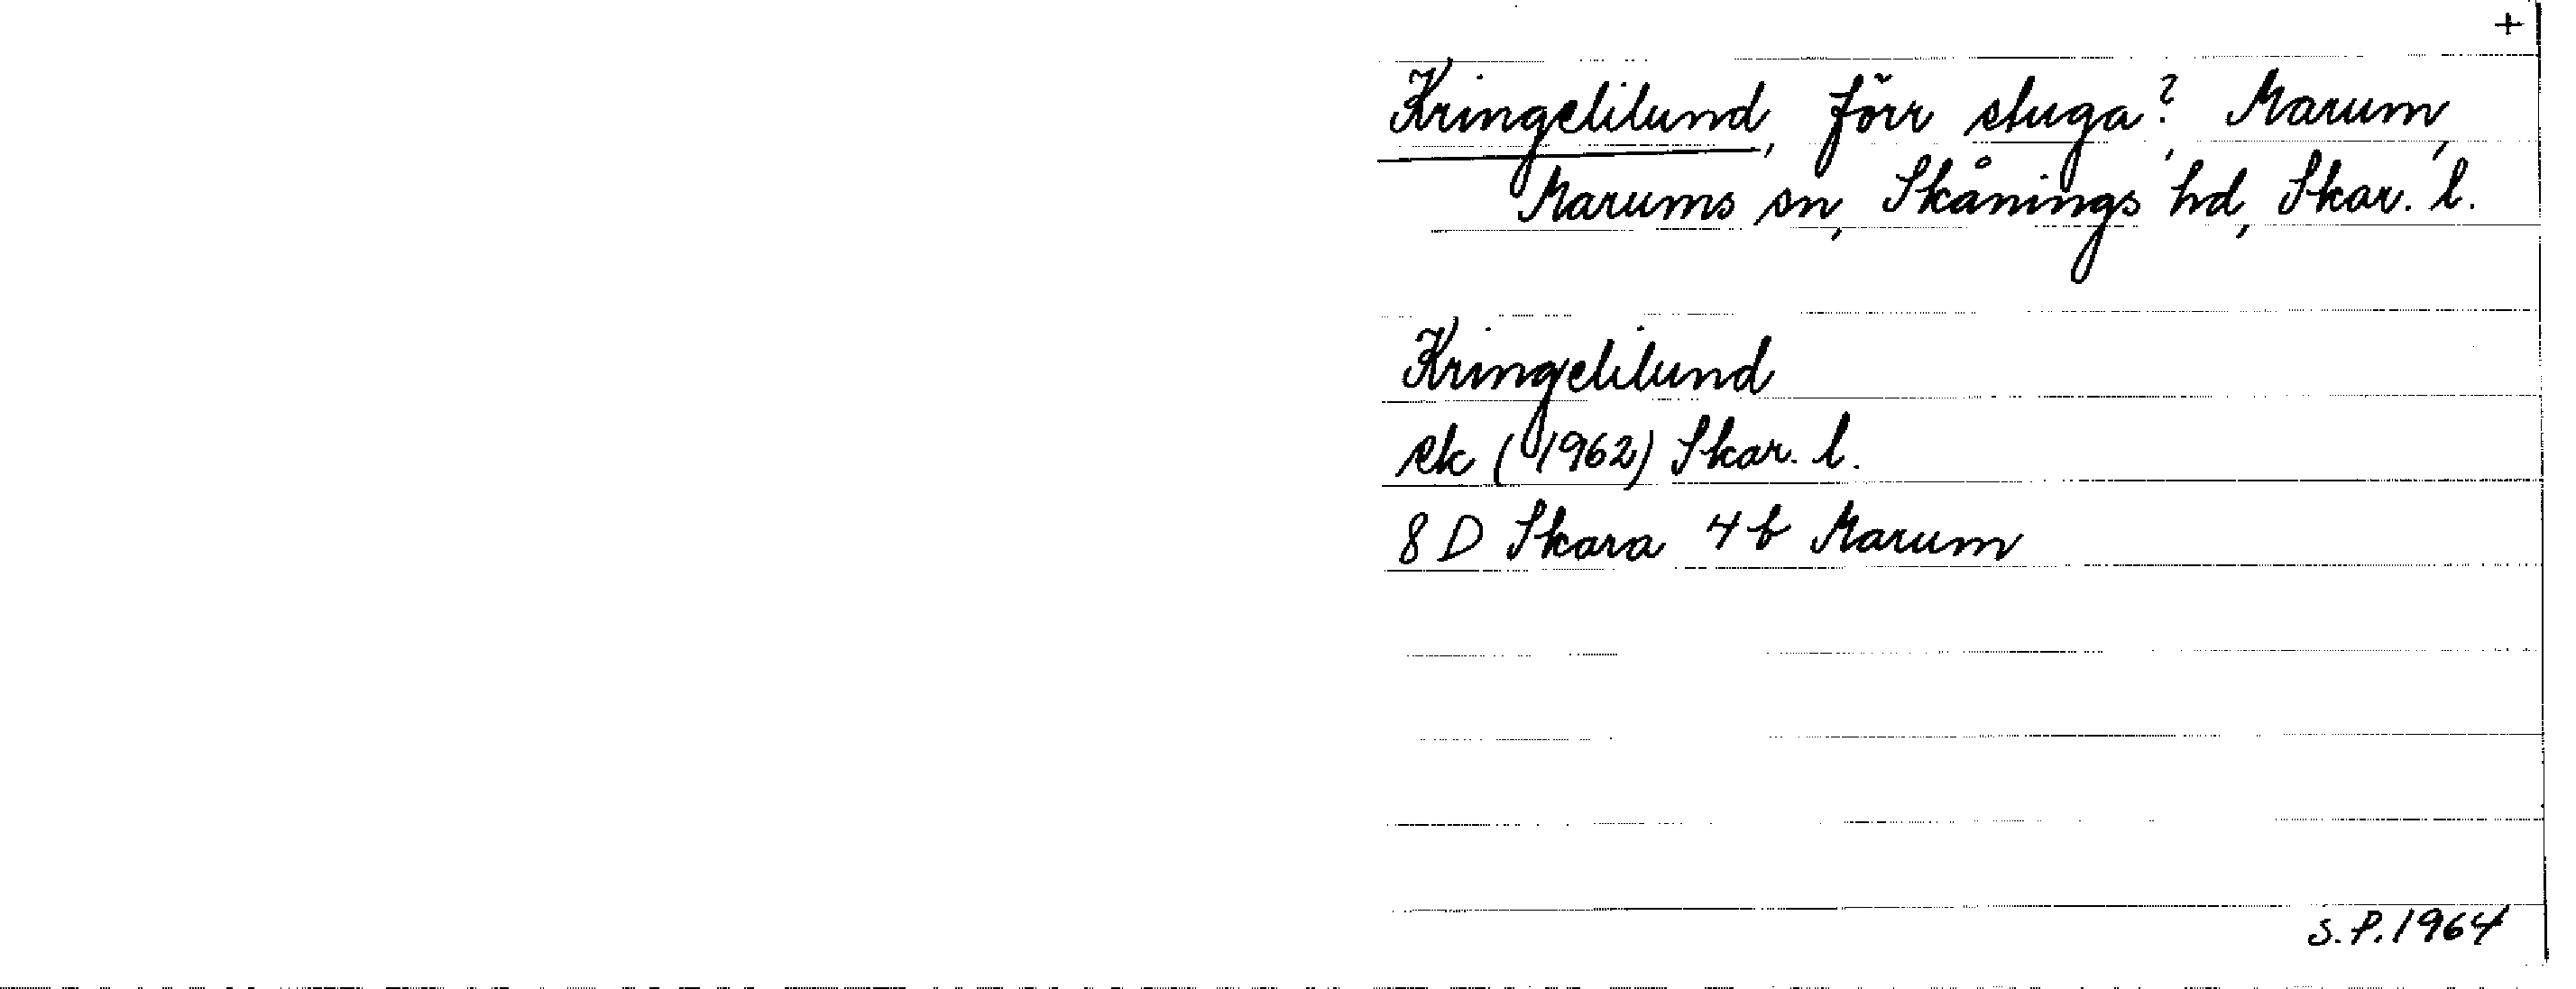 +
Kringelilund, förr stuga?, Marum,
Marums sn, Skånings hd, Skar. l.
Kringelilund
ek (1962) Skar. l.
8 D Skara 4 b Marum
S.P. 1964